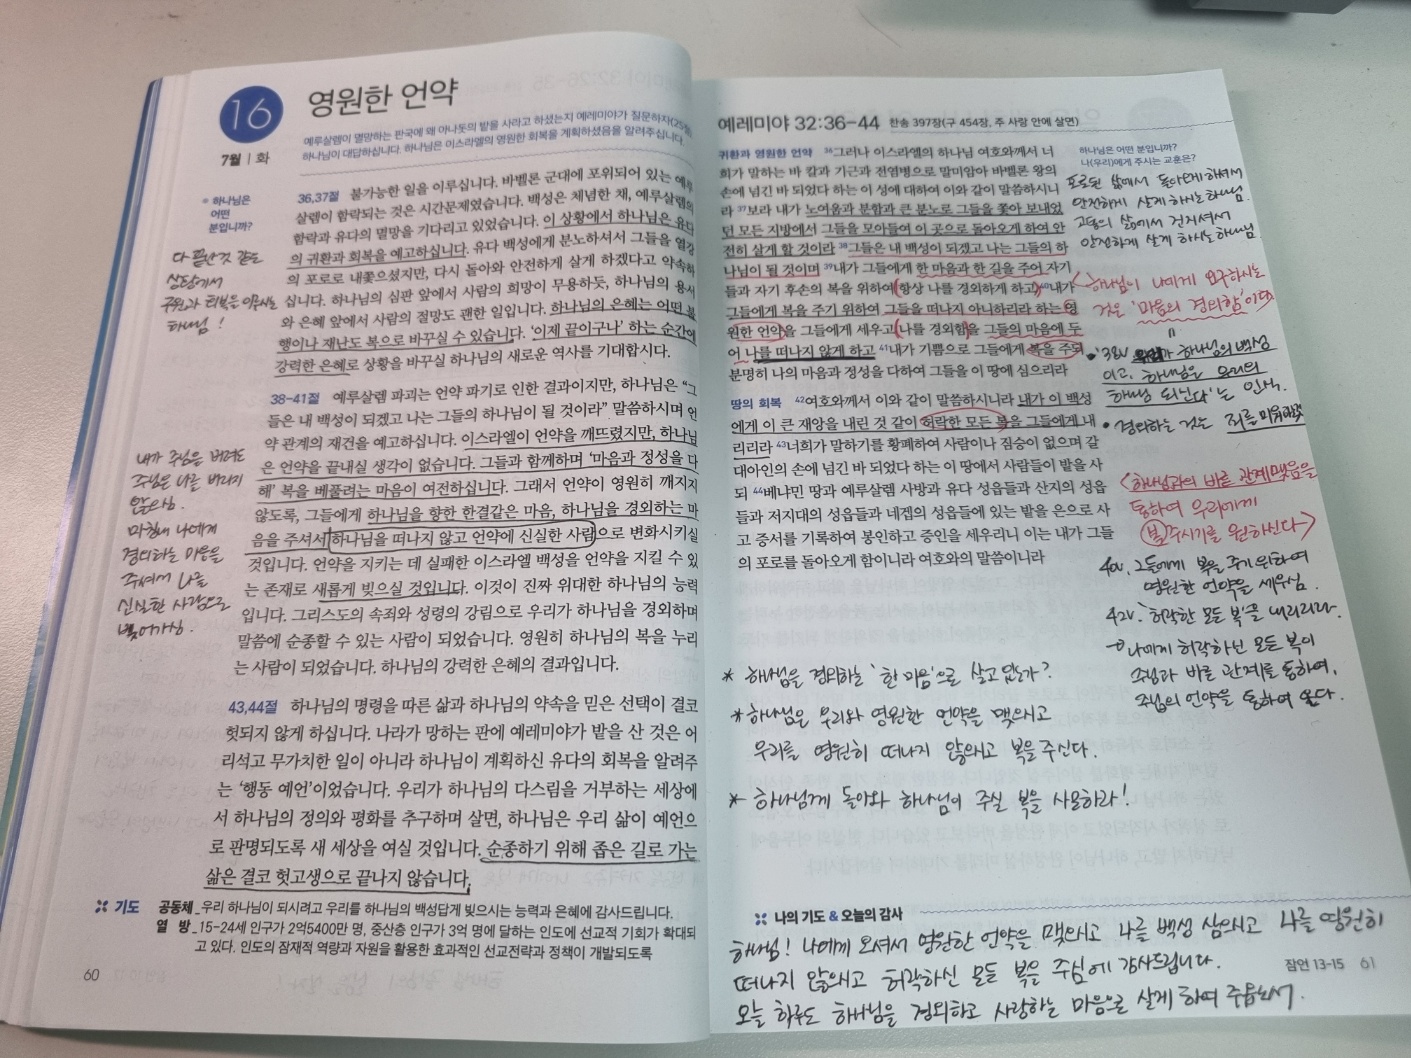 16
7월 | 화
영원한 언약
예루살렘이 멸망하는 판국에 왜 아나돗의 밭을 사라고 하셨는지 예레미야가 질문하자(25절)
하나님이 대답하십니다. 하나님은 이스라엘의 영원한 회복을 계획하셨음을 알려주십니다.
하나님은
어떤
분입니까?
36,37절 불가능한 일을 이루십니다. 바벨론 군대에 포위되어 있는 예루
살렘이 함락되는 것은 시간문제였습니다. 백성은 체념한 채, 예루살렘의
함락과 유다의 멸망을 기다리고 있었습니다. 이 상황에서 하나님은 유다
의 귀환과 회복을 예고하십니다. 유다 백성에게 분노하셔서 그들을 열강
의 포로로 내쫓으셨지만, 다시 돌아와 안전하게 살게 하겠다고 약속하
십니다. 하나님의 심판 앞에서 사람의 희망이 무용하듯, 하나님의 용서
와 은혜 앞에서 사람의 절망도 괜한 일입니다. 하나님의 은혜는 어떤 불
행이나 재난도 복으로 바꾸실 수 있습니다. '이제 끝이구나' 하는 순간에
강력한 은혜로 상황을 바꾸실 하나님의 새로운 역사를 기대합시다.
다 끝난것 같은
상황에서
구원과 회복을 이루시는
하나님!
38-41절 예루살렘 파괴는 언약 파기로 인한 결과이지만, 하나님은 "그
들은 내 백성이 되겠고 나는 그들의 하나님이 될 것이라" 말씀하시며 언
약 관계의 재건을 예고하십니다. 이스라엘이 언약을 깨뜨렸지만, 하나님
은 언약을 끝내실 생각이 없습니다. 그들과 함께하며 '마음과 정성을 다
해' 복을 베풀려는 마음이 여전하십니다. 그래서 언약이 영원히 깨지지
않도록, 그들에게 하나님을 향한 한결같은 마음, 하나님을 경외하는 마
음을 주셔서 하나님을 떠나지 않고 언약에 신실한 사람으로 변화시키실
것입니다. 언약을 지키는 데 실패한 이스라엘 백성을 언약을 지킬 수 있
는 존재로 새롭게 빚으실 것입니다. 이것이 진짜 위대한 하나님의 능력
입니다. 그리스도의 속죄와 성령의 강림으로 우리가 하나님을 경외하며
말씀에 순종할 수 있는 사람이 되었습니다. 영원히 하나님의 복을 누리
는 사람이 되었습니다. 하나님의 강력한 은혜의 결과입니다.
내가 주님을 버려도
주님은 나를 버리지
않으심.
마침내 나에게
경외하는 마음을
주셔서 나를
신실한 사람으로
빚어가심.
43,44절 하나님의 명령을 따른 삶과 하나님의 약속을 믿은 선택이 결코
헛되지 않게 하십니다. 나라가 망하는 판에 예레미야가 밭을 산 것은 어
리석고 무가치한 일이 아니라 하나님이 계획하신 유다의 회복을 알려주
는 '행동 예언'이었습니다. 우리가 하나님의 다스림을 거부하는 세상에
서 하나님의 정의와 평화를 추구하며 살면, 하나님은 우리 삶이 예언으
로 판명되도록 새 세상을 여실 것입니다. 순종하기 위해 좁은 길로 가는
삶은 결코 헛고생으로 끝나지 않습니다.
기도 공동체_우리 하나님이 되시려고 우리를 하나님의 백성답게 빚으시는 능력과 은혜에 감사드립니다.
열 방_15-24세 인구가 2억5400만 명, 중산층 인구가 3억 명에 달하는 인도에 선교적 기회가 확대되
고 있다. 인도의 잠재적 역량과 자원을 활용한 효과적인 선교전략과 정책이 개발되도록
60
예레미야 32:36-44 찬송 397장(구 454장, 주 사랑 안에 살면)
귀환과 영원한 언약 36그러나 이스라엘의 하나님 여호와께서 너
희가 말하는 바 칼과 기근과 전염병으로 말미암아 바벨론 왕의
손에 넘긴 바 되었다 하는 이 성에 대하여 이와 같이 말씀하시니
라 37보라 내가 노여움과 분함과 큰 분노로 그들을 쫓아 보내었
던 모든 지방에서 그들을 모아들여 이 곳으로 돌아오게 하여 안
전히 살게 할 것이라 38그들은 내 백성이 되겠고 나는 그들의 하
나님이 될 것이며 39내가 그들에게 한 마음과 한 길을 주어 자기
들과 자기 후손의 복을 위하여 항상 나를 경외하게 하고 40내가
그들에게 복을 주기 위하여 그들을 떠나지 아니하리라 하는 영
원한 언약을 그들에게 세우고 나를 경외함을 그들의 마음에 두
어 나를 떠나지 않게 하고 41내가 기쁨으로 그들에게 복을 주되
분명히 나의 마음과 정성을 다하여 그들을 이 땅에 심으리라
땅의 회복 42여호와께서 이와 같이 말씀하시니라 내가 이 백성
에게 이 큰 재앙을 내린 것 같이 허락한 모든 복을 그들에게 내
리리라 43너희가 말하기를 황폐하여 사람이나 짐승이 없으며 갈
대아인의 손에 넘긴 바 되었다 하는 이 땅에서 사람들이 밭을 사
되 44베냐민 땅과 예루살렘 사방과 유다 성읍들과 산지의 성읍
들과 저지대의 성읍들과 네겝의 성읍들에 있는 밭을 은으로 사
고 증서를 기록하여 봉인하고 증인을 세우리니 이는 내가 그들
의 포로를 돌아오게 함이니라 여호와의 말씀이니라
하나님은 어떤 분입니까?
나(우리)에게 주시는 교훈은?
포로된 삶에서 돌아오게 하셔서
안전하게 살게 하시는 하나님.
고통의 삶에서 건지셔서
안전하게 살게 하시는 하나님
<하나님이 나에게 요구하시는
것은 '마음의 경외함'이다
38v 하나님의 백성
이고, 하나님은 우리의
하나님 되신다'는 인식.
• 경외하는 것은 죄를 미워하는것
<하나님과의 바른 관계맺음을
통하여 우리에게
복 주시기를 원하신다>
40v. 그들에게 복을 주기 위하여
영원한 언약을 세우심.
42v. '허락한 모든 복'을 내리리라.
→ 나에게 허락하신 모든 복이
주님과 바른 관계를 통하여,
주님의 언약을 통하여 온다.
* 하나님을 경외하는 '한 마음'으로 살고 있는가?
* 하나님은 우리와 영원한 언약을 맺으시고
우리를 영원히 떠나지 않으시고 복을 주신다.
* 하나님께 돌아와 하나님이 주실 복을 사용하라!
나의 기도 & 오늘의 감사
하나님! 나에게 오셔서 영원한 언약을 맺으시고 나를 백성 삼으시고 나를 영원히
떠나지 않으시고 허락하신 모든 복을 주심에 감사드립니다.
오늘 하루도 하나님을 경외하고 사랑하는 마음으로 살게 하여 주옵소서.
잠언 13-15 61